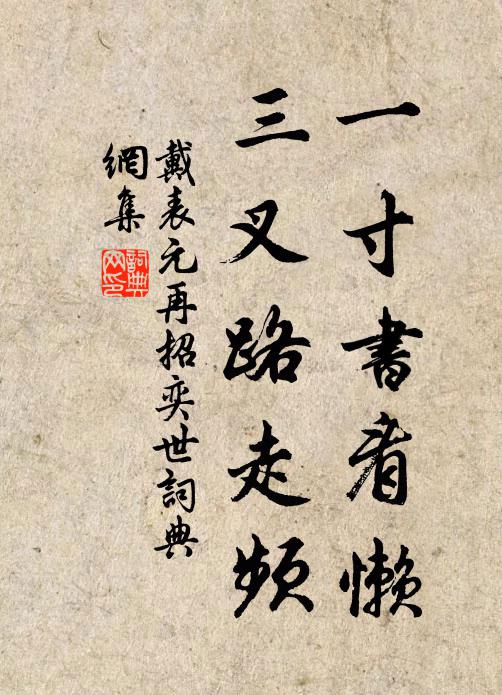 一寸書看懶
三叉路走頻
戴表元再招奕世詞典
網集
詞典
网印